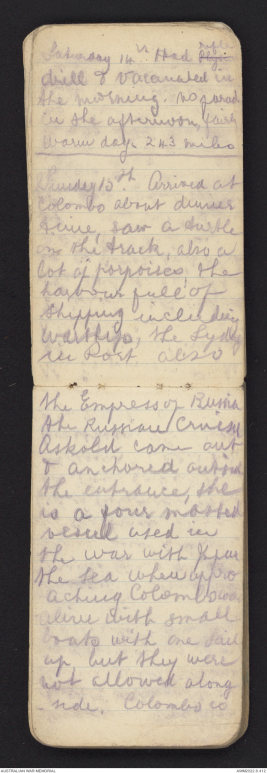 Saturday 14th. Had rifle
drill & vaccinated in
the morning. no parad
in the afternoon, fairly
warm day. 243 miles
Sunday 15th Arrived at
Colombo about dinner
time, saw a turtle
on the track, also a
lot of porpoises, the
harbour full of
shipping including
warships, the Sydney
in Port, also
the Empress of Russia
the Russian Cruiser
Askold came out
& anchored outside
the entrance, she
is a four masted
vessel used in
the war with Japan
the sea when appro
aching Colombo was
alive with small
boats with one sail
up, but they were
not allowed along
-side. Colombo is
AUSTRALIAN WAR MEMORIAL